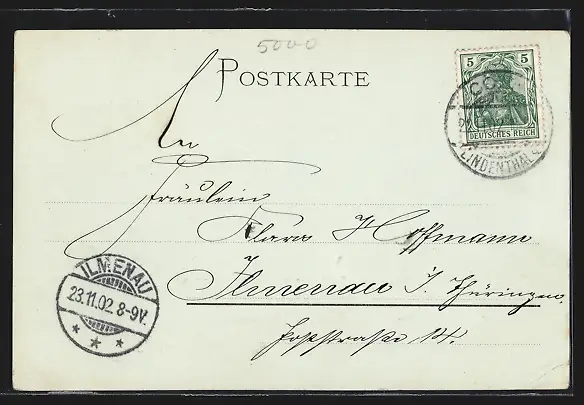 5000
POSTKARTE
5
DEUTSCHES REICH
CÖLN
LINDENTHAL
An
Fräulein
Klara Hoffmann
Ilmenau i. Thüringen.
Poststraße 14.
ILMENAU
23.11.02 8-9V.